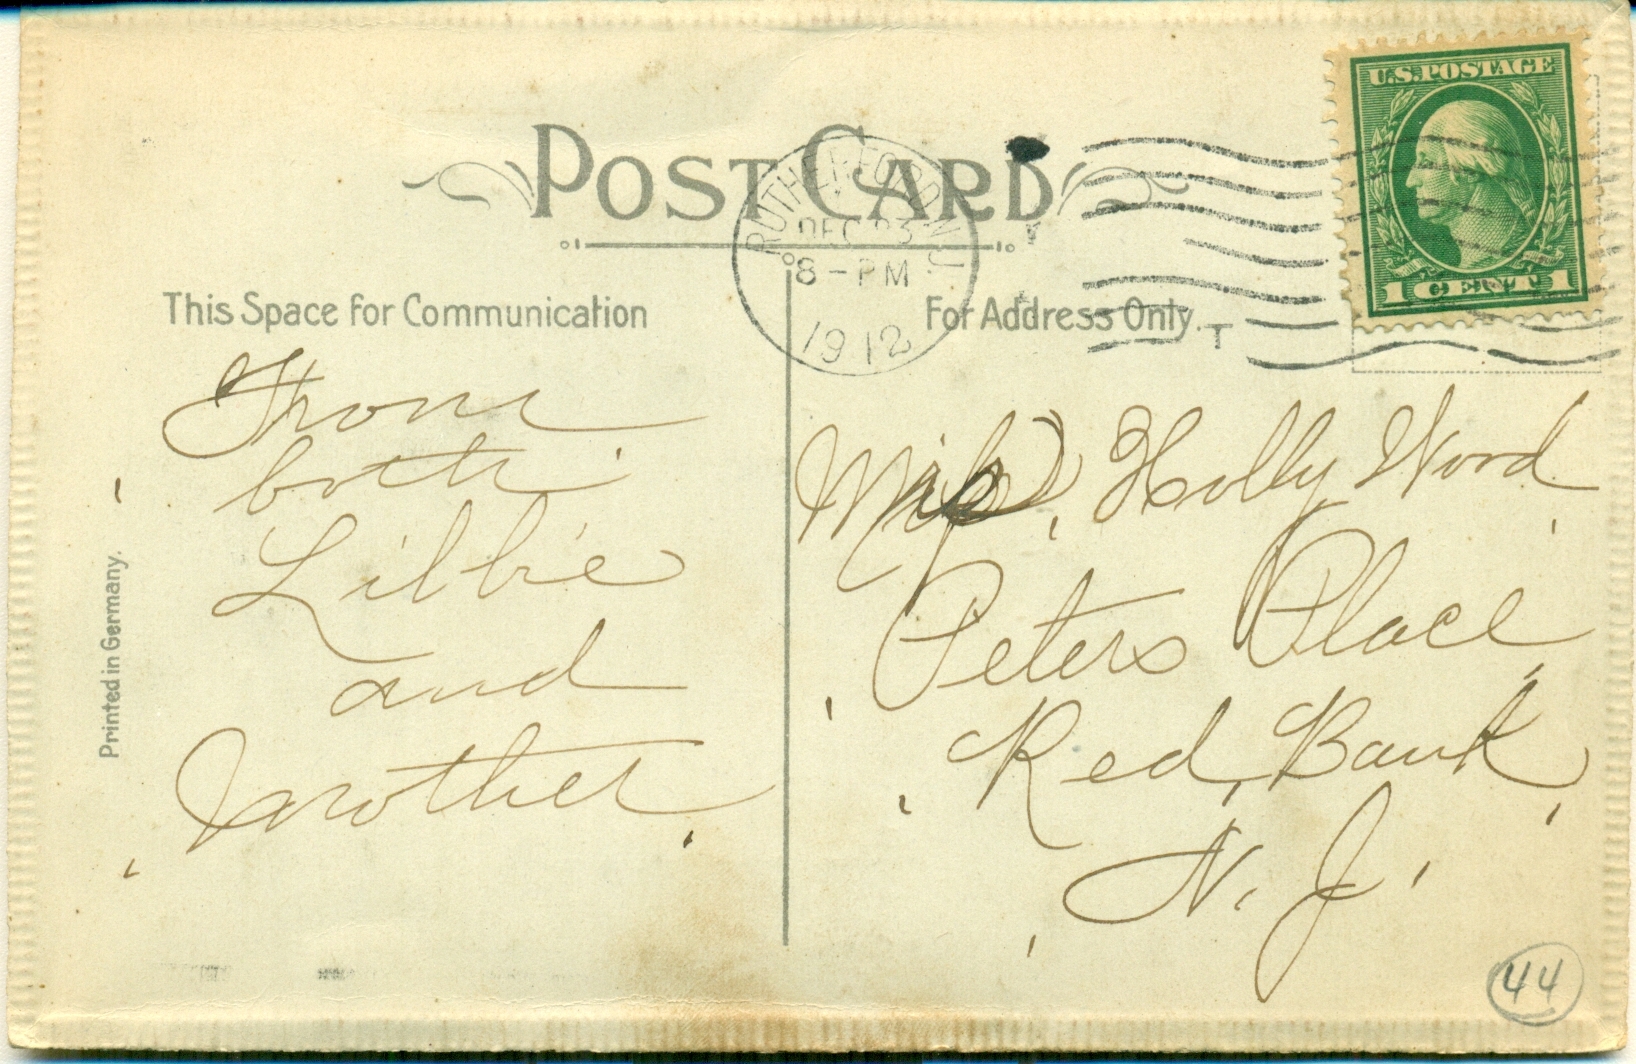 POST CARD
RUTHERFORD N.J.
DEC 23
8-PM
1912
U.S. POSTAGE
1 CENT 1
This Space for Communication
For Address Only.
T
From
both
Libbie
and
Mother.
Miss Holly Wood
Peters Place
Red Bank
N. J.
Printed in Germany.
44